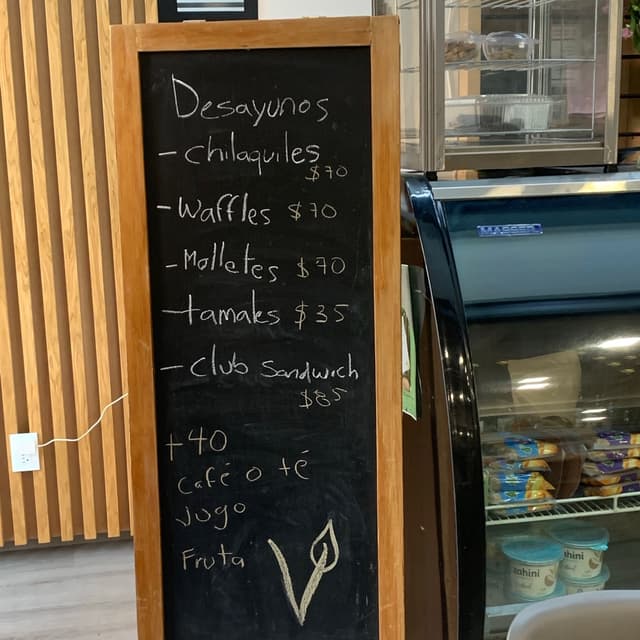 Desayunos
- Chilaquiles
$70
- Waffles $70
- Molletes $70
- tamales $35
- Club Sandwich
$85
+40
Café o té
Jugo
Fruta